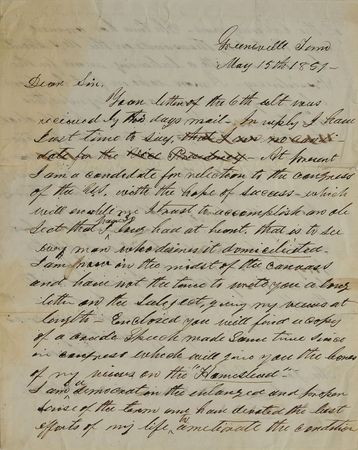 Greeneville Tenn
May 15th 1851-
Dear Sir.
Your letter of the 6th ult was
received by this days mail- In reply I have
Just time to say, that I am no candi-
date for the Vice Presidency- At present
I am a candidate for relection to the congress
of the U.S. with the hope of success- which
will enable me I trust to accomplish an ob
ject that I have long had at heart, that is to see
every man who desires it domiciliated-
I am now in the midst of the canvass
and have not the time to write you a long
letter on the subject, giving my views at
length- Enclosed you will find a copy
of a crude speech made some time since
in congress which will give you the
of my views on the "Homestead"-
I am a democrat in the enlarged and proper
sense of the term and have devoted the best
efforts of my life to ameliorate the condition